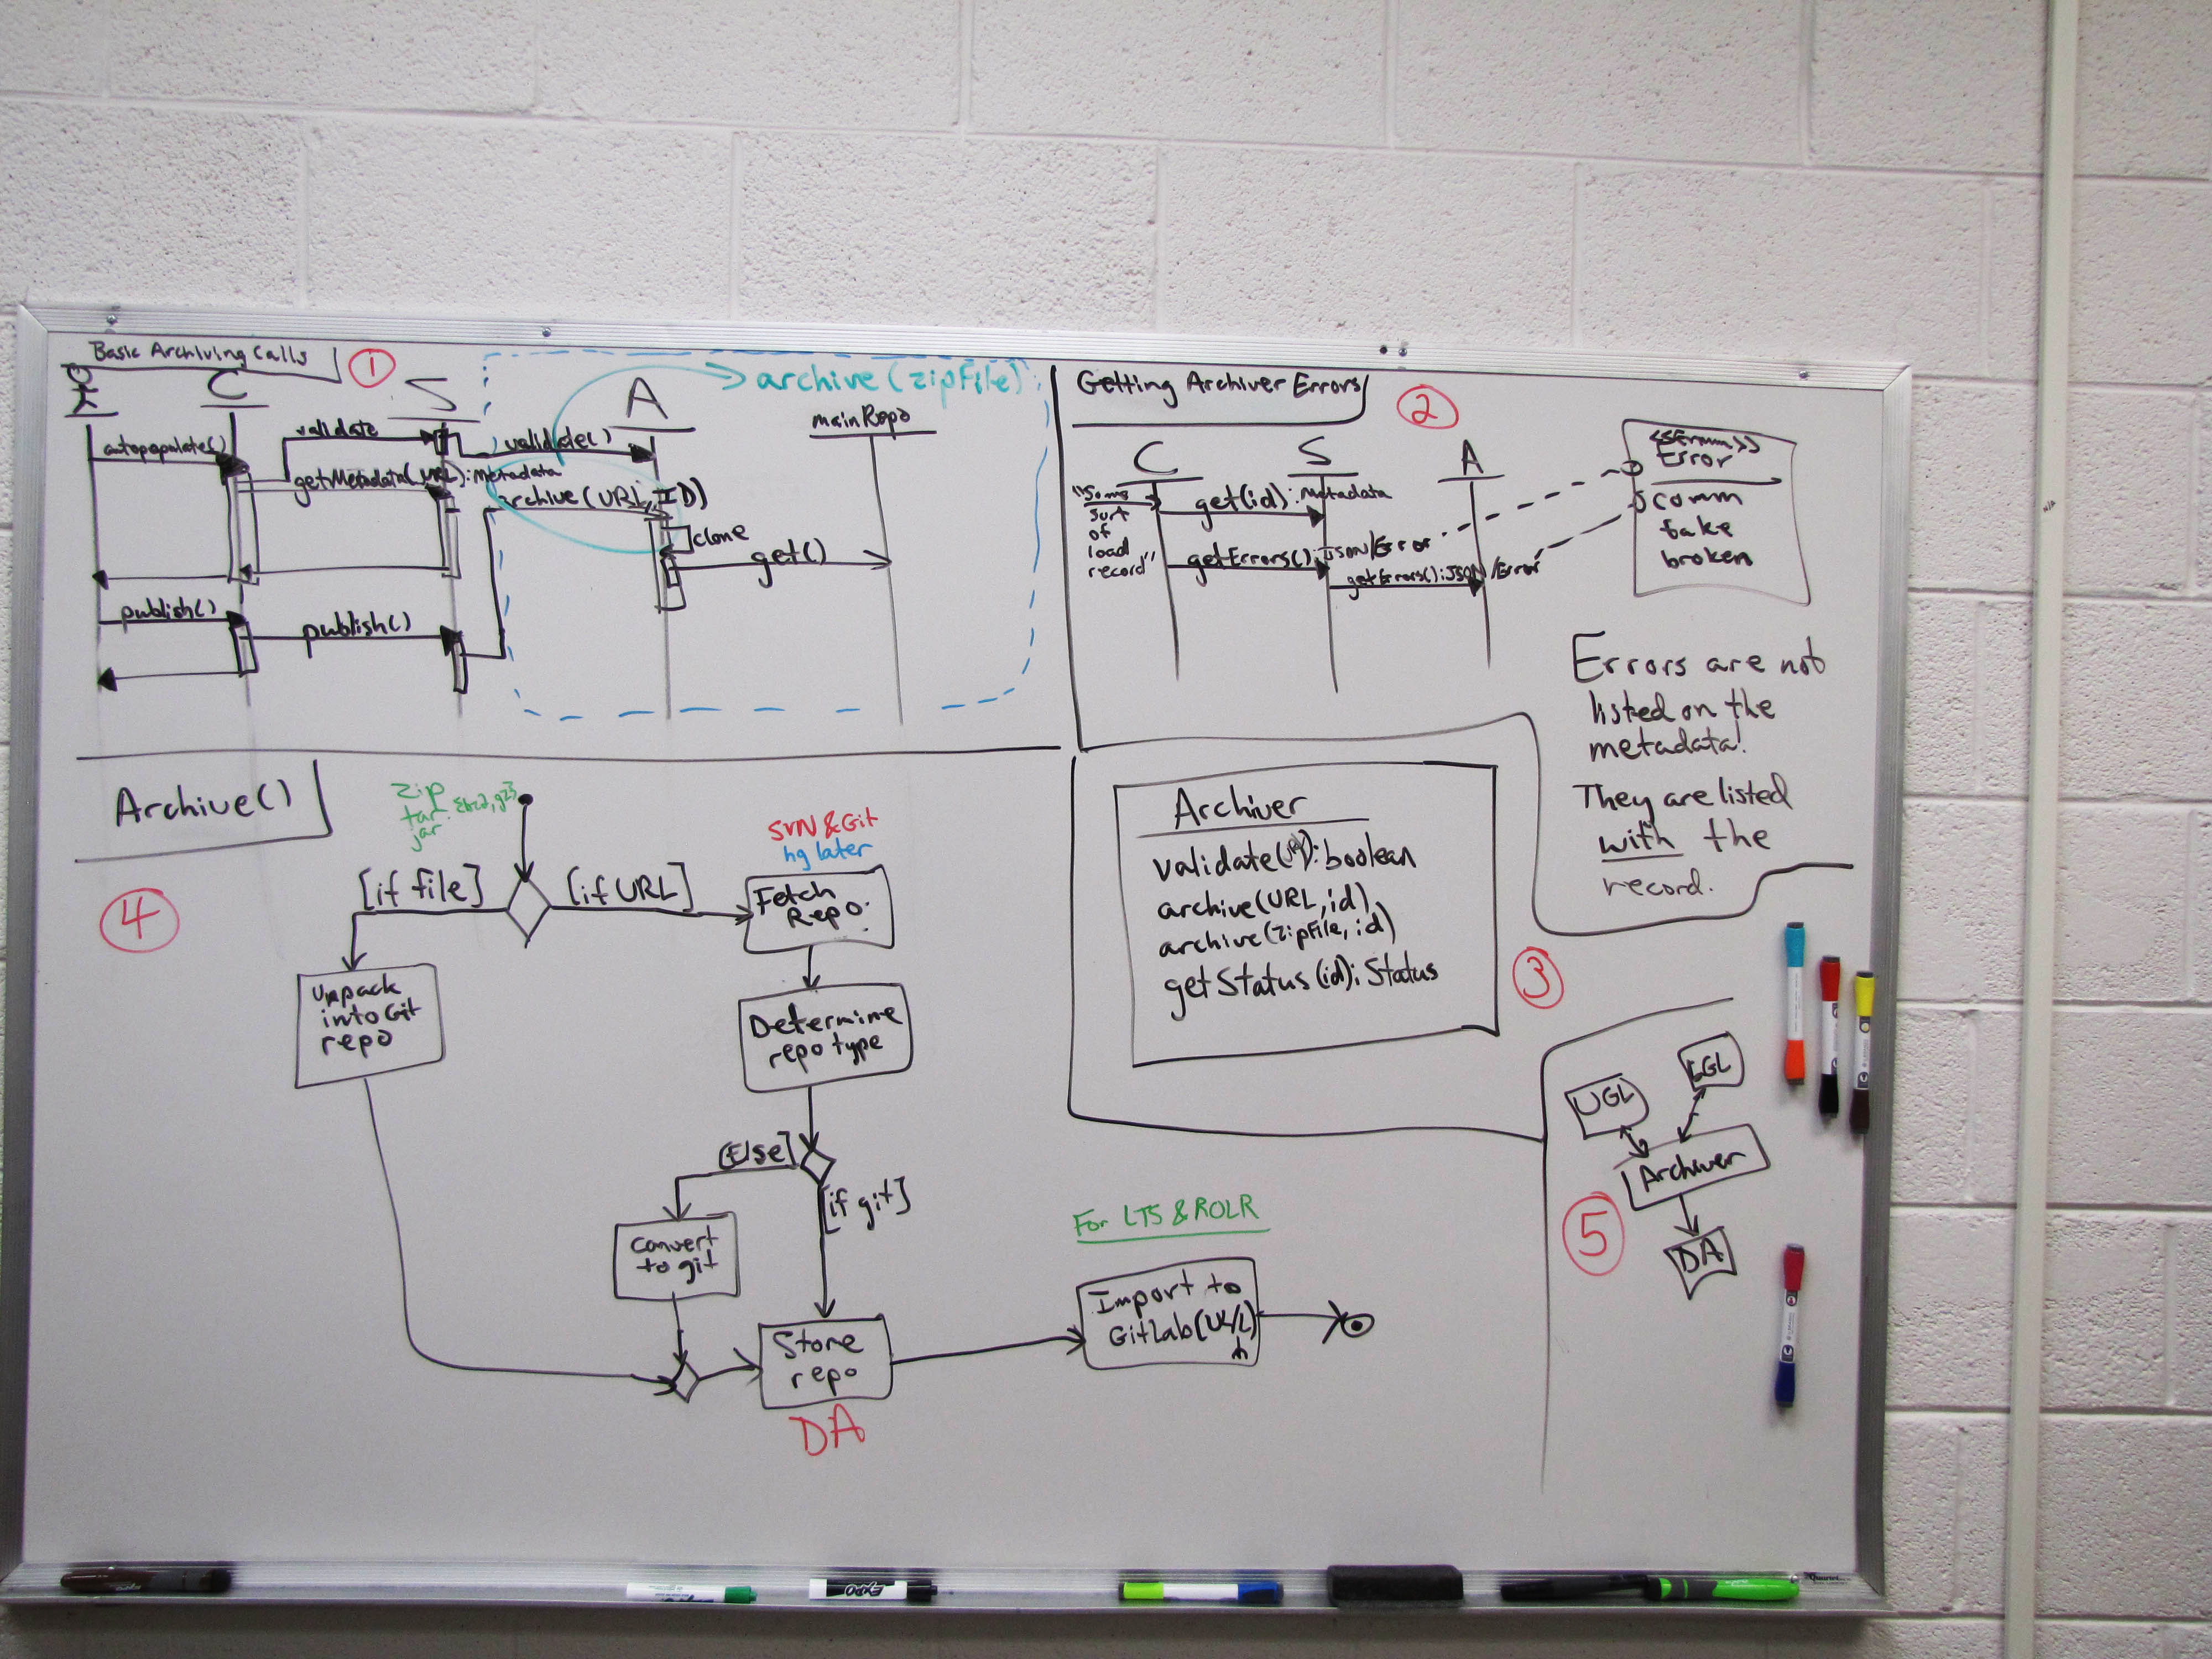 Basic Archiving Calls
1
C
S
A
mainRepo
archive(zipFile)
autopopulate()
validate
validate()
getMetadata(URL):Metadata
archive(URL, ID)
clone
get()
publish()
publish()
Getting Archiver Errors
2
C
S
A
"Some
sort
of
load
record"
get(id):Metadata
getErrors():JSON/Error
getErrors():JSON/Error
<<Enum>>
Error
comm
fake
broken
Errors are not
listed on the
metadata!
They are listed
with the
record.
Archiver
validate(    ):boolean
archive(URL,id)
archive(zipFile, id)
getStatus(id):Status
3
Archive()
4
zip
tar.{bz2,gz}
jar
[if file]
[if URL]
SVN & Git
hg later
Fetch
Repo:
Unpack
into Git
repo
Determine
repo type
[Else]
[if git]
Convert
to git
Store
repo
DA
For LTS & ROLR
Import to
GitLab(U/L)
5
UGL
LGL
Archiver
DA
EXPO
Quartet